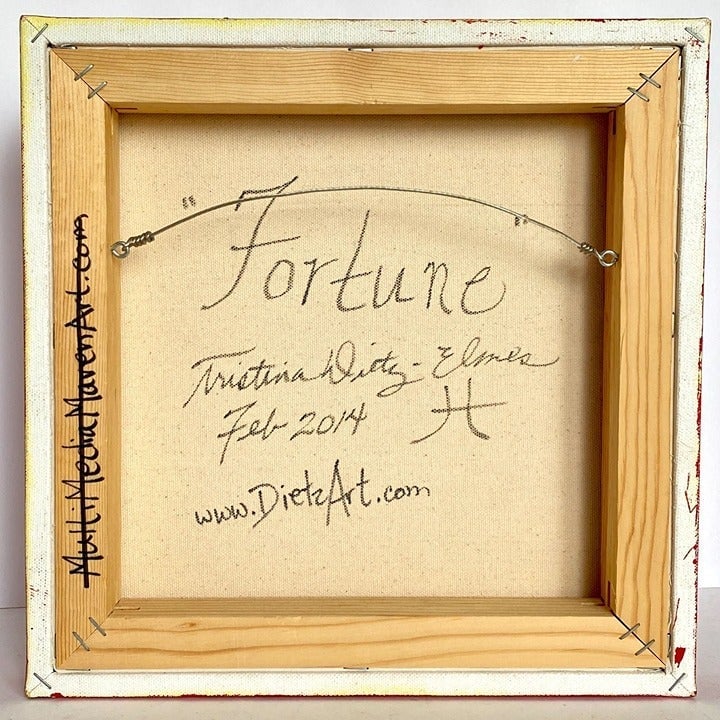 "Fortune"
Tristina Dietz-Elmes
Feb 2014
www.DietzArt.com
MultiMediaMavenArt.com